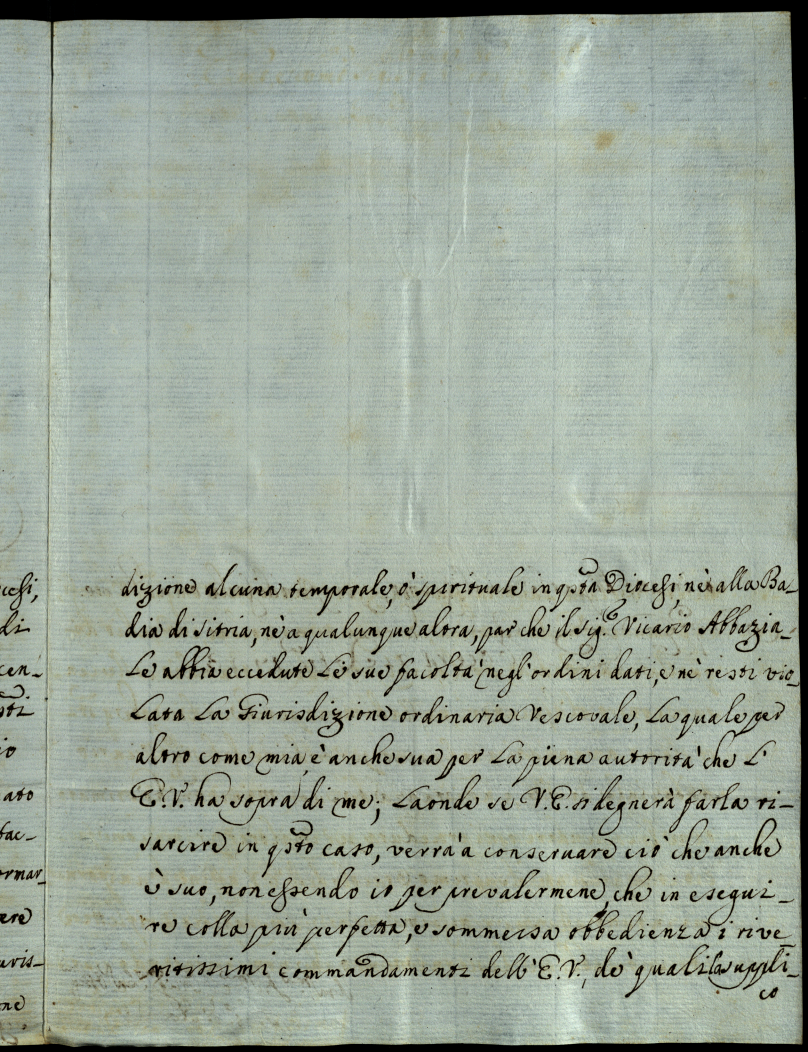 cesi,
di
cen-
sti
io
ato
fac-
ormar-
ere
uris-
one
dizione alcuna temporale, ò spirituale in qsta Diocesi, nè alla Ba-
dia di sitria, nè a qualunque altra, par che il sig.e Vicario Abbazia-
le abbia eccedute le sue facoltà negl'ordini dati, e nè resti vio-
lata la Giurisdizione ordinaria Vescovale, la quale per
altro come mia, è anche sua per la piena autorità che l'
E.V. ha sopra di me; laonde se V.E. si degnerà farla ri-
sarcire in qsto caso, verrà a conservare ciò che anche
è suo, non essendo io per prevalermene, che in esegui-
re colla più perfetta, e sommessa obbedienza i rive-
ritissimi commandamenti dell'E.V., de' quali la suppli-
co